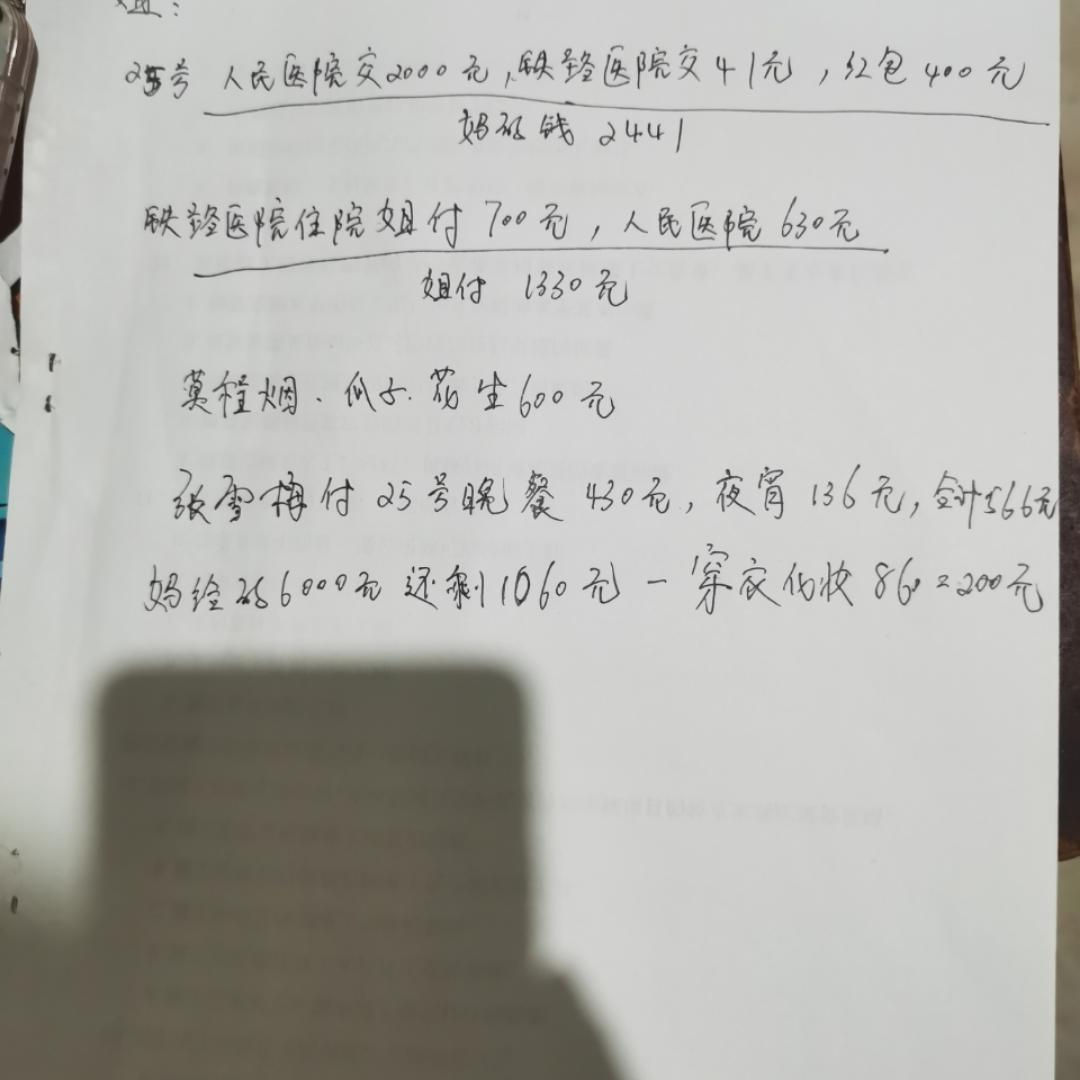 姐：
25号 人民医院交2000元，铁路医院交41元，红包400元
妈的钱 2441
铁路医院住院姐付 700元，人民医院 630元
姐付 1330元
莫程烟、瓜子、花生600元
张雪梅付 25号晚餐 430元，夜宵 136元，合计566元
妈给的6000元 还剩1060元 - 穿衣化妆 860=200元